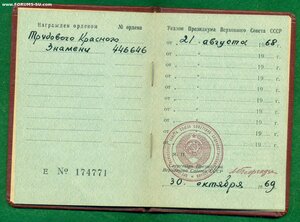 www.FORUMS-SU.com
Награжден орденом № ордена
Трудового Красного
Знамени 446646
Е № 174771
Указ Президиума Верховного Совета СССР
от 21 августа 1968.
от 19 г.
от 19 г.
от 19 г.
от 19 г.
от 19 г.
от 19 г.
Секретарь Президиума
Верховного Совета СССР
30 октября 1969